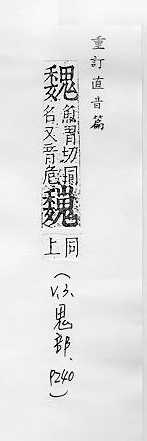 重訂直音篇
魏
魚胃切國
名又音危
同
上
(V.3, 鬼部, P240)